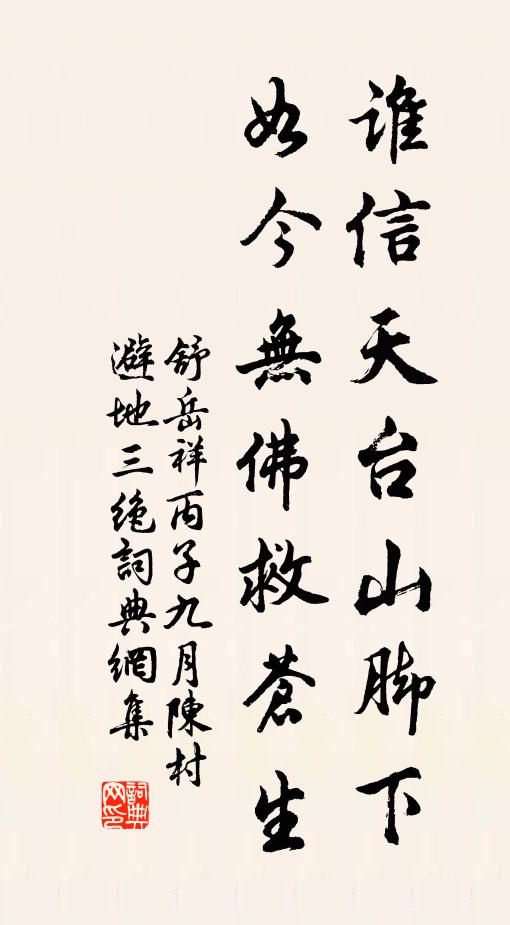 谁信天台山脚下
如今無佛救蒼生
舒岳祥丙子九月陳村
避地三绝詞典網集
詞典
网印